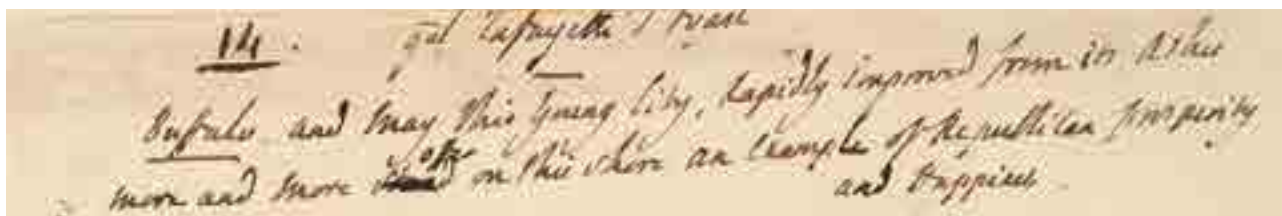 14. gal Lafayette's Toast
Buffalo and may this young City, Rapidly improved from its Ashes
more and more offer on this shore an Example of Republican prosperity
and Happiness